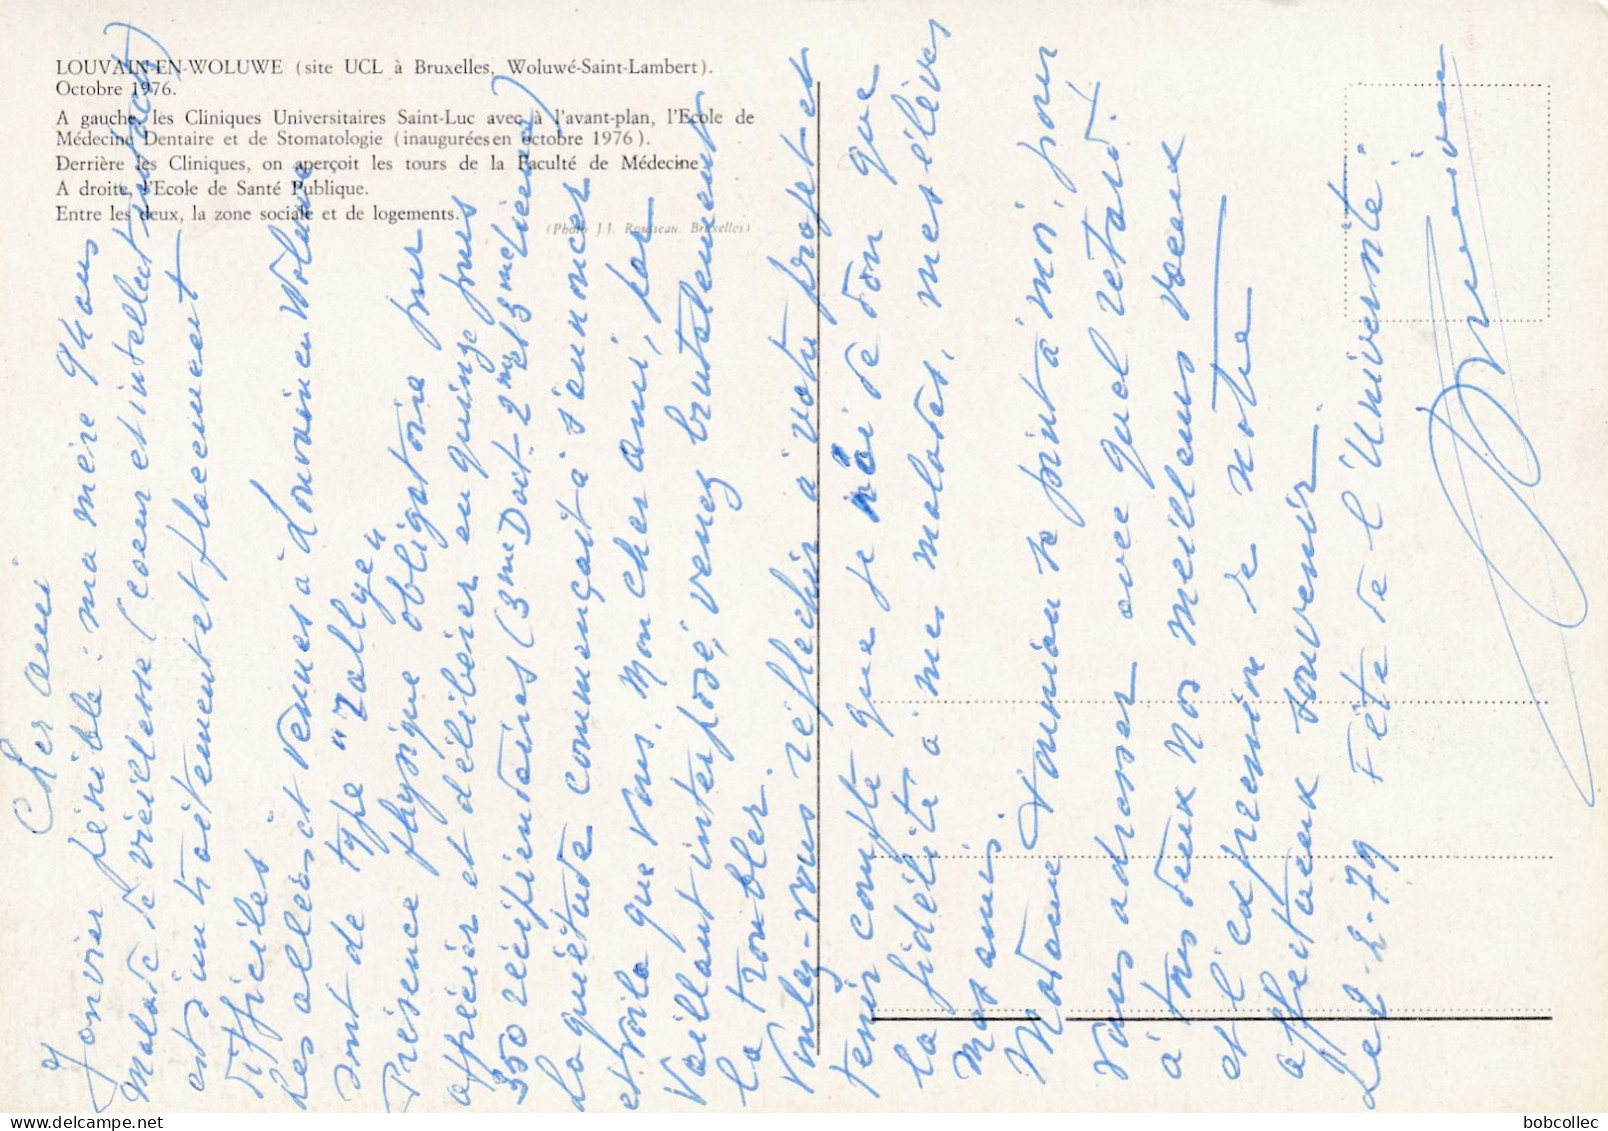 LOUVAIN-EN-WOLUWE (site UCL à Bruxelles, Woluwé-Saint-Lambert).
Octobre 1976.
A gauche, les Cliniques Universitaires Saint-Luc avec à l'avant-plan, l'Ecole de
Médecine Dentaire et de Stomatologie (inaugurées en octobre 1976).
Derrière les Cliniques, on aperçoit les tours de la Faculté de Médecine.
A droite, l'Ecole de Santé Publique.
Entre les deux, la zone sociale et de logements.
(Photo J.J. Rousseau. Bruxelles)
Cher ami
Janvier pénible : ma mère 94 ans
malade de vieillesse (coeur et intellect intacts)
est d'un traitement et placement
difficiles
Les allées et venues à Louvain en Woluwe
sont de type "rallye"
Présence physique obligatoire pour
apprécier et délibérer en quinze jours
350 récipiendaires (3me Doct - 2me et 3me licence)
La quiétude commençait à s'annoncer
et voilà que vous, mon cher ami, par
Vaillant interposé, venez brutalement
la troubler.
Voulez-vous réfléchir à votre projet et
tenir compte que je n'ai de don que
la fidélité à mes malades, mes élèves
mes amis.
Madame se joint à moi, pour
vous adresser avec quel retard !
à tous deux nos meilleurs voeux
et l'expression de notre
affectueux souvenir.
Le 2-2-79 Fête de l'Université.
bobcollec